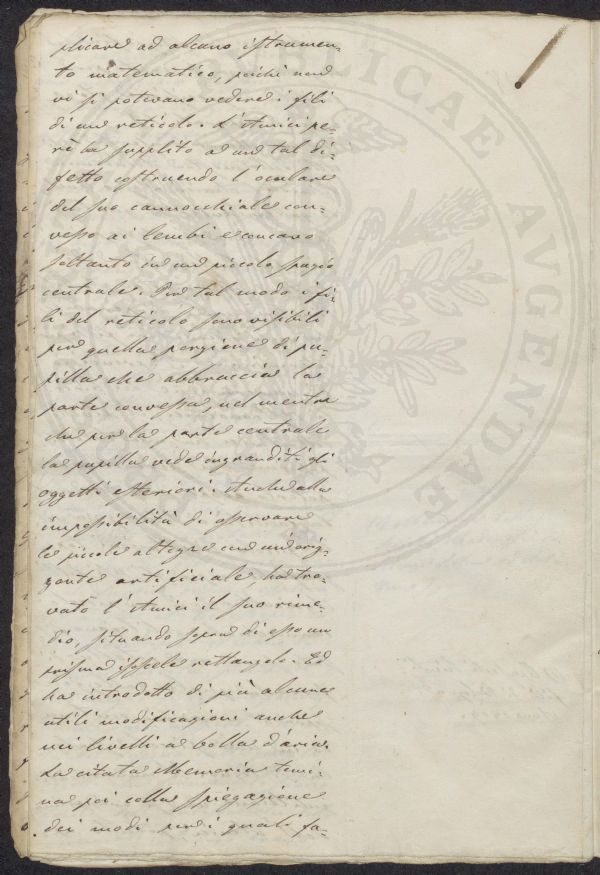 plicare ad alcuno istrumen-
to matematico, poichè non
vi si potevano vedere i fili
di un reticolo. L'Amici pe-
rò ha supplito ad un tal di-
fetto costruendo l'oculare
del suo cannocchiale con-
vesso ai lembi e concavo
soltanto in un piccolo spazio
centrale. Per tal modo i fi-
li del reticolo sono visibili
per quella porzione di pu-
pilla che abbraccia la
parte convessa, nel mentre
che per la parte centrale
la pupilla vede ingranditi gli
oggetti esteriori. Anche alla
impossibilità di osservare
le piccole altezze con un'oriz-
zonte artificiale, ha tro-
vato l'Amici il suo rime-
dio, situando sopra di esso un
prisma isoscele rettangolo. Ed
ha introdotto di più alcune
utili modificazioni anche
nei livelli a bolla d'aria.
La citata Memoria termi-
na poi colla spiegazione
dei modi per i quali fa-
PUBLICAE AVGENDAE